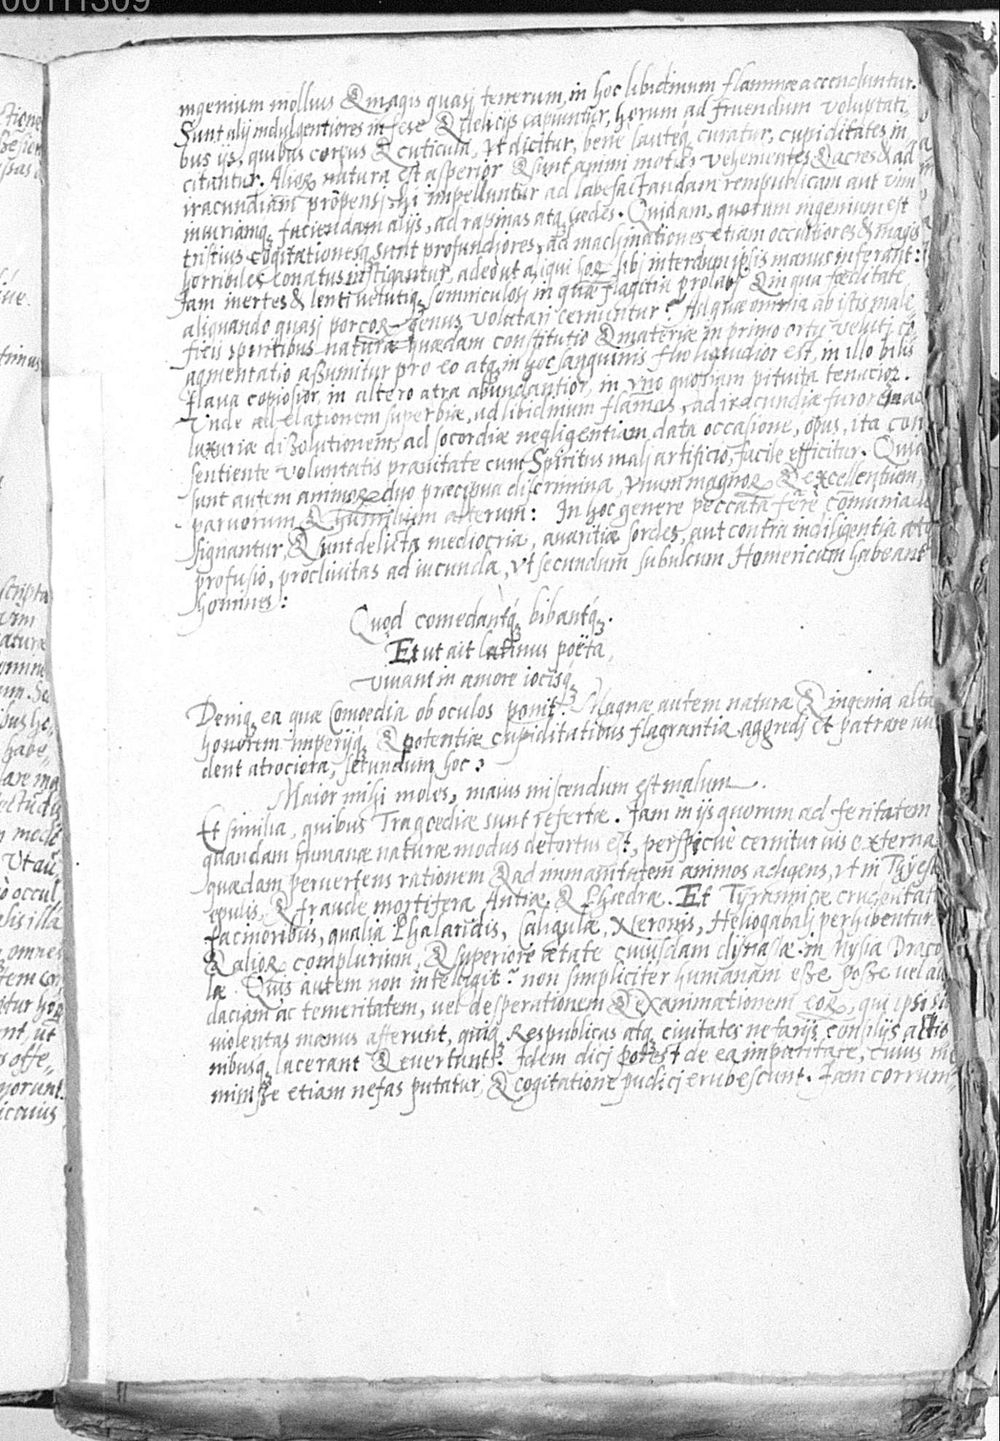 00111309
ingenium mollius & magis quasi tenerum, in hoc libidinum flammæ accenduntur.
Sunt alij indulgentiores in sese & delicijs capiuntur, horum ad fruendum voluptati
bus ijs, quibus corpus & cuticula, vt dicitur, bene lauteq; curatur, cupiditates in
citantur. Alior natura est asperior & sunt animi motus vehementes & acres & ad
iracundiam propensi, hi impelluntur ad labefactandam rempublicam aut vim
iniuriamq; faciendam alijs, ad rapinas atq; cædes. Quidam, quorum ingenium est
tristius cogitationesq; sunt profundiores, ad machinationes etiam occultiores & magis
horribiles conatus instigantur, adeò ut aliqui hor sibi interdum ipsis manus inferant:
Iam inertes & lenti veluti somniculosi in quæ flagitia prolabi & in qua fœditate
aliquando quasi porcor genus volutari cernuntur? Ad quæ omnia ab istis male
ficis spiritibus naturæ quædam constitutio & materiæ in primo ortu veluti co
agmentatio assumitur pro eo atq; in hoc sanguinis fluo liquidior est, in illo bilis
flaua copiosior, in altero atra abundantior, in vno quopiam pituita tenacior.
Vnde ad elationem superbiæ, ad libidinum flamas, ad iracundiæ furorem ad
luxuriæ dißolutionem, ad socordiæ negligentiam data occasione, opus, ita con
sentiente voluntatis prauitate cum Spiritus mali artificio, facile efficitur. Quia
sunt autem animor duo præcipua discrimina, vnum magnor & excellentium,
paruorum & humilium alterum: In hoc genere peccata ferè comunia de
signantur, & sunt delicta mediocria, auaritiæ sordes, aut contra indiligentia atq
profusio, procliuitas ad iucunda, vt secundum subulcum Homericum habeant
homines:
Quod comedantq; bibantq;.
Et ut ait latinus poëta,
viuant in amore iocisq;
Deniq; ea quæ Comoedia ob oculos ponit. Magnæ autem naturæ & ingenia alta
honorem imperijq; & potentiæ cupiditatibus flagrantia aggredi et patrare au
dent atrociora, secundum hoc:
Maior mihi moles, maius miscendum est malum.
Et similia, quibus Tragœdiæ sunt refertæ. Iam in ijs quorum ad feritatem
quandam humanæ naturæ modus detortus est, perspicuè cernitur uis externa
quædam peruertens rationem & ad inmanitatem animos adigens, vt in Thyeste
epulis, & fraude mortifera Antiæ, & Phædræ. Et Tyrannicæ cruentat
facinoribus, qualia Phalaridis, Caligulæ, Neronis, Heliogabali perhibentur
& alior complurium, & superiore ætate cuiusdam dynastæ in Mysia Draco
læ. Quis autem non intelligit? non simpliciter humanam eße poße vel au
daciam ac temeritatem, vel desperationem & exanimationem eor, qui ipsi si
violentas manus afferunt, quiq; Respublicas atq; ciuitates nefarijs consilijs actio
nibusq; lacerant & euertunt? Idem dici potest de ea impuritate, cuius me
minisse etiam nefas putatur, & cogitatione pudici erubescunt. Iam corrum